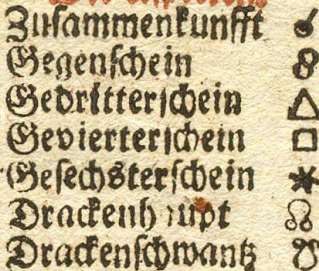 Zusammenkunfft ☌
Gegenschein ☍
Gedritterschein △
Gevierterschein □
Gesechsterschein ⚹
Drackenhaupt ☊
Drackenschwantz ☋